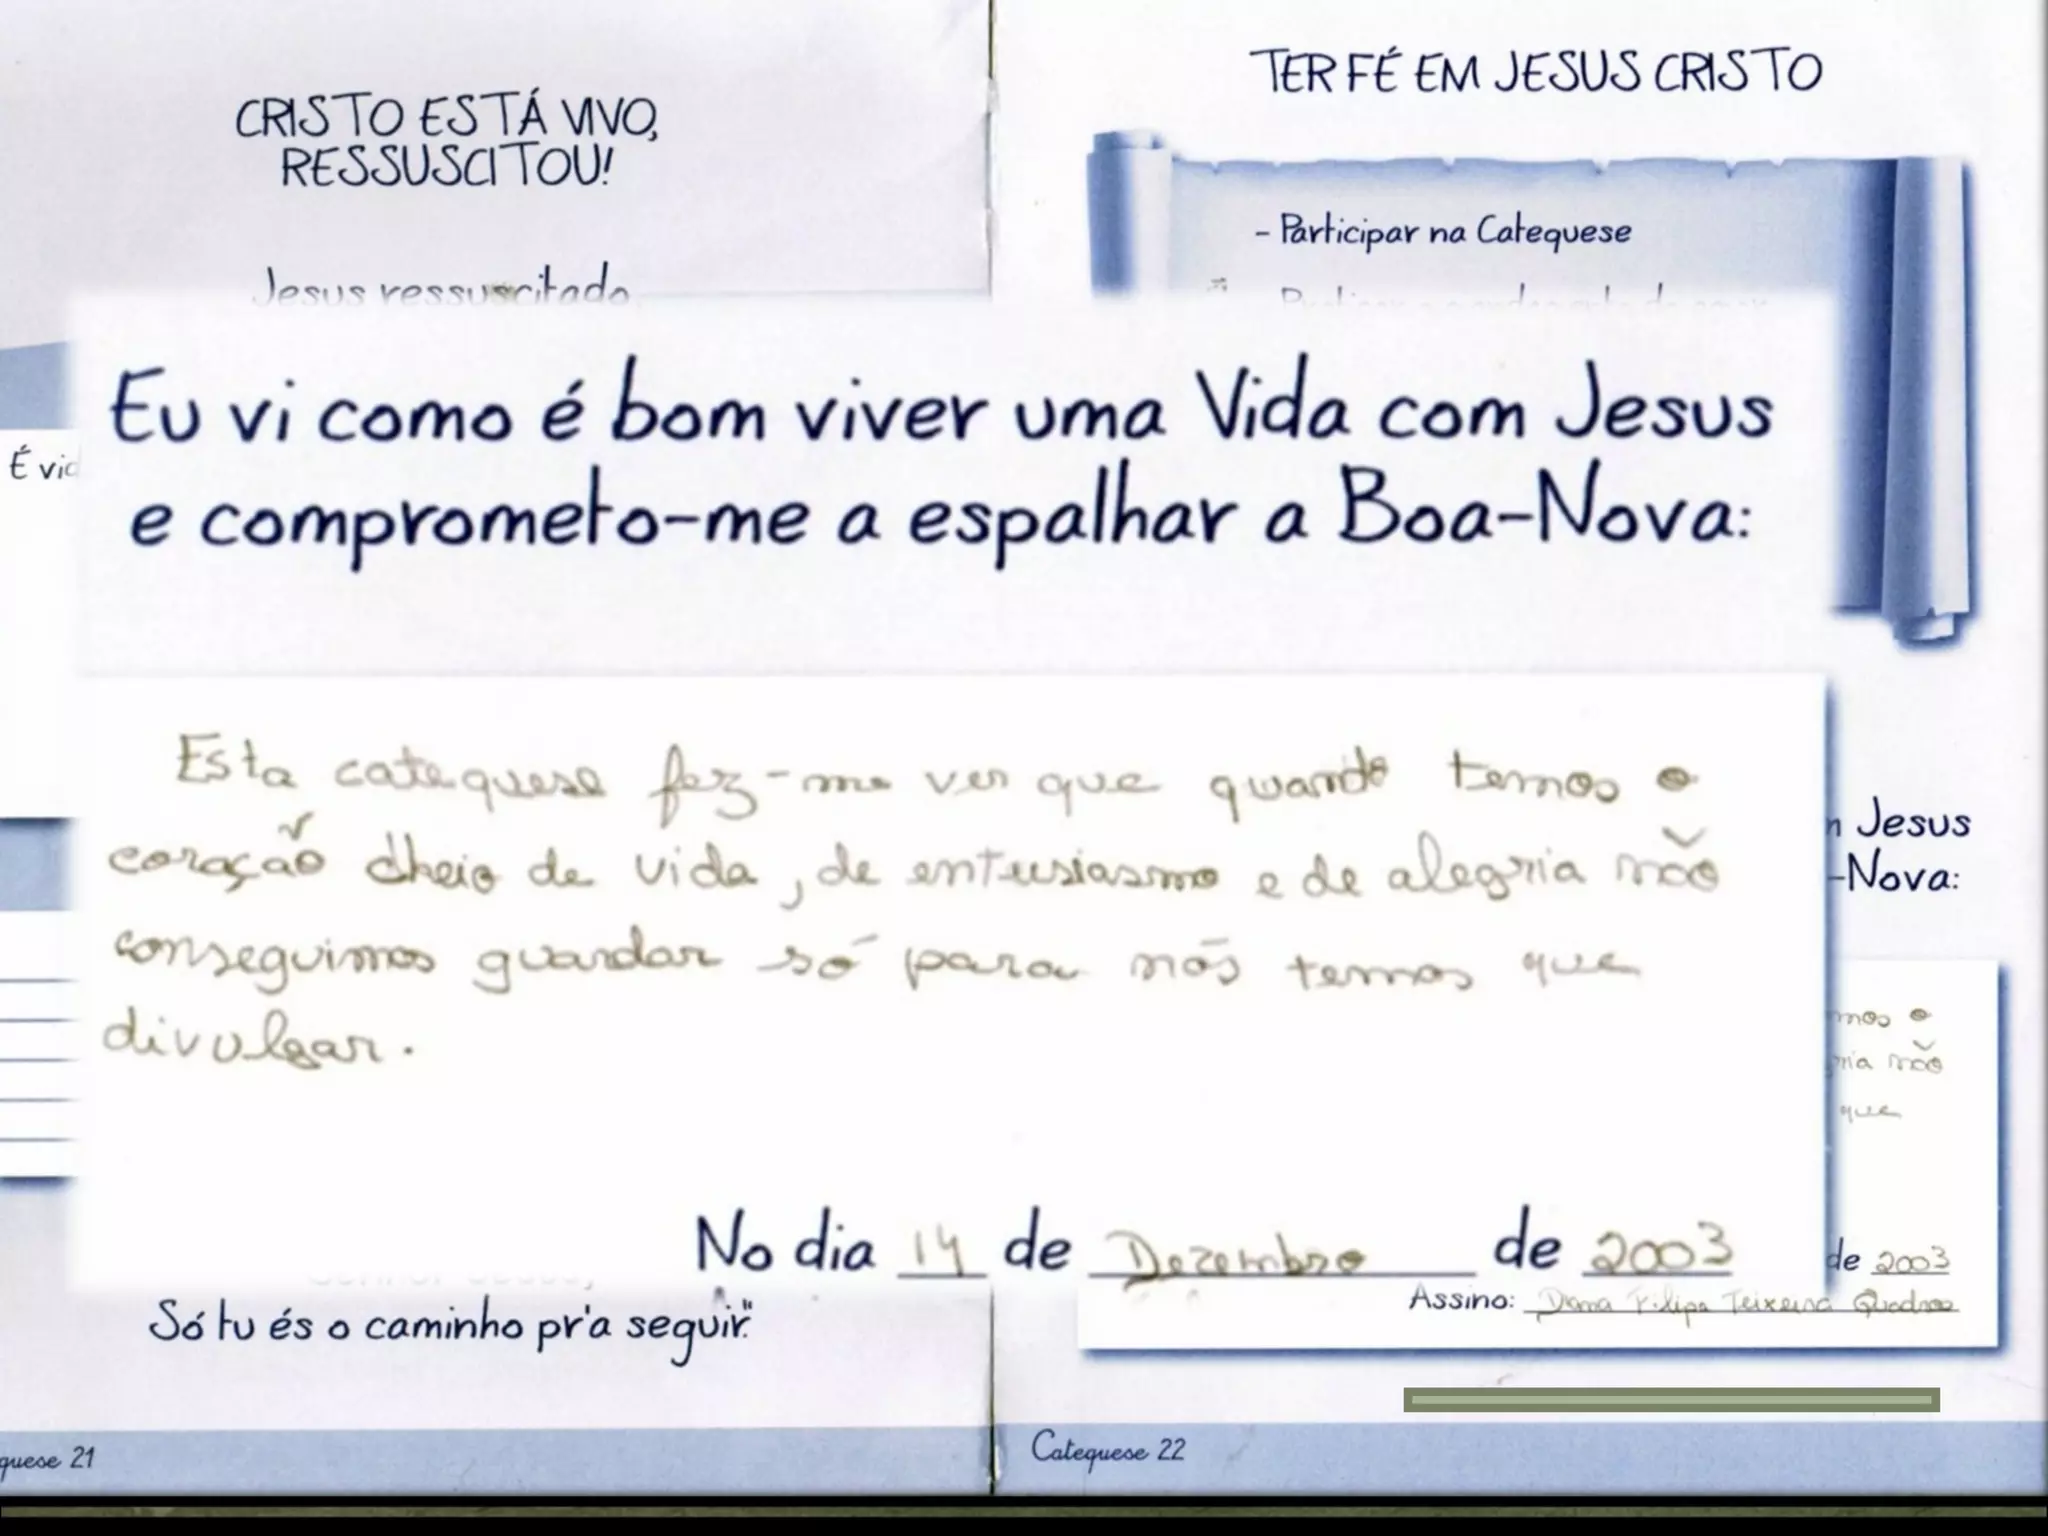 CRISTO ESTÁ VIVO,
RESSUSCITOU!
Jesus ressuscitado
É vi
TER FÉ EM JESUS CRISTO
- Participar na Catequese
Eu vi como é bom viver uma Vida com Jesus
e comprometo-me a espalhar a Boa-Nova:
Esta catequese fez-me ver que quando temos o
coração cheio de vida, de entusiasmo e de alegria não
conseguimos guardar só para nós temos que
divulgar.
No dia 14 de Dezembro de 2003
Jesus
-Nova:
mos o
ria não
que
de 2003
Assino: Diana Filipa Teixeira Quadros
Só tu és o caminho pr'a seguir."
quese 21
Catequese 22